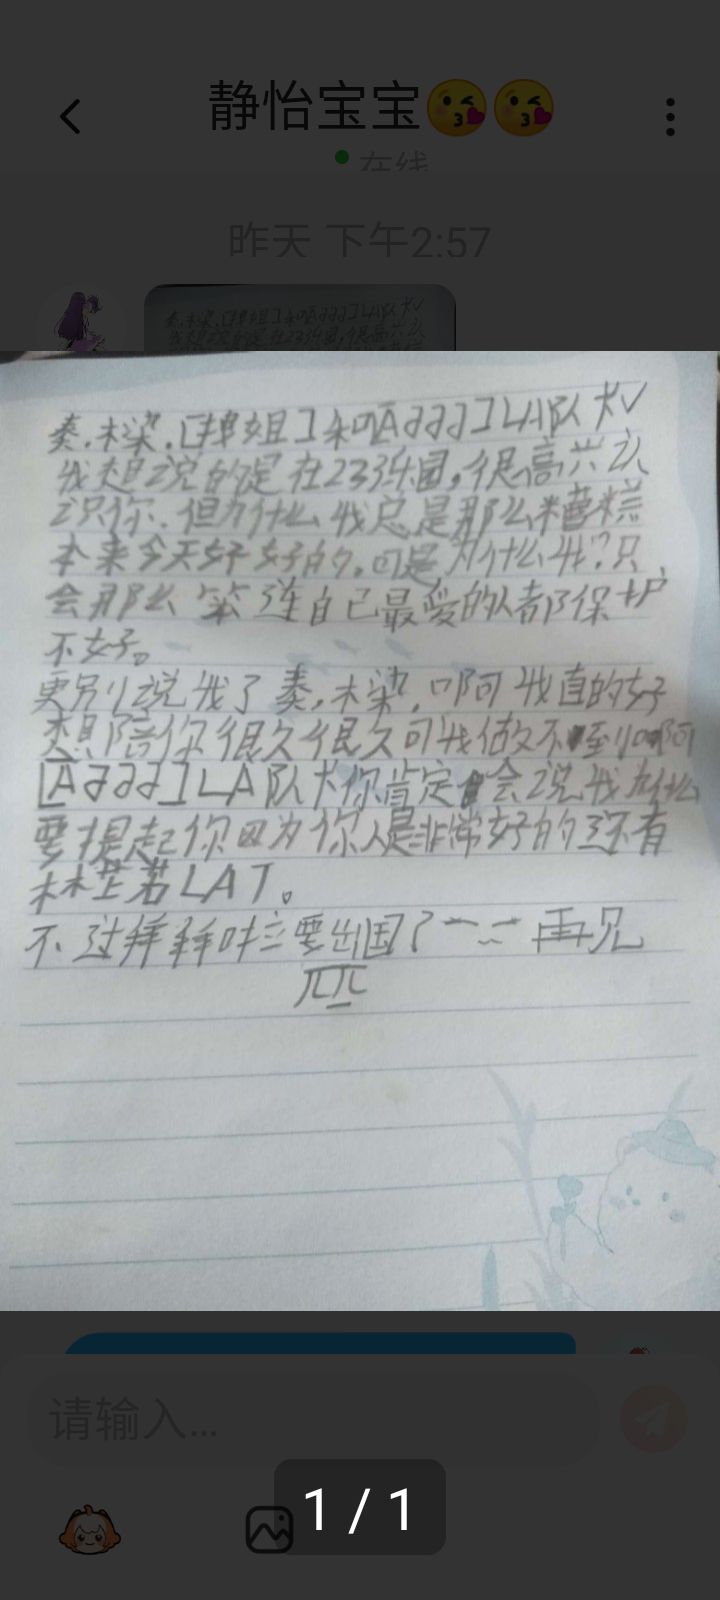 静怡宝宝😘😘
在线
昨天 下午2:57
奏.木染.[拽姐]和[Aააა]LA队长
我想说的是在233乐园,很高兴认
识你.但为什么我总是那么糟糕
本来今天好好的.可是为什么我?只
会那么笨连自己最爱的人都保护
不好。
更别说我了奏,木染,啊啊我真的好
想陪你很久很久可我做不到啊啊
LA队长你肯定会说我为什么
要提起你因为你人是非常好的还有
林芷若LAT。
不过拜拜啦要出国了 再见
请输入...
1 / 1